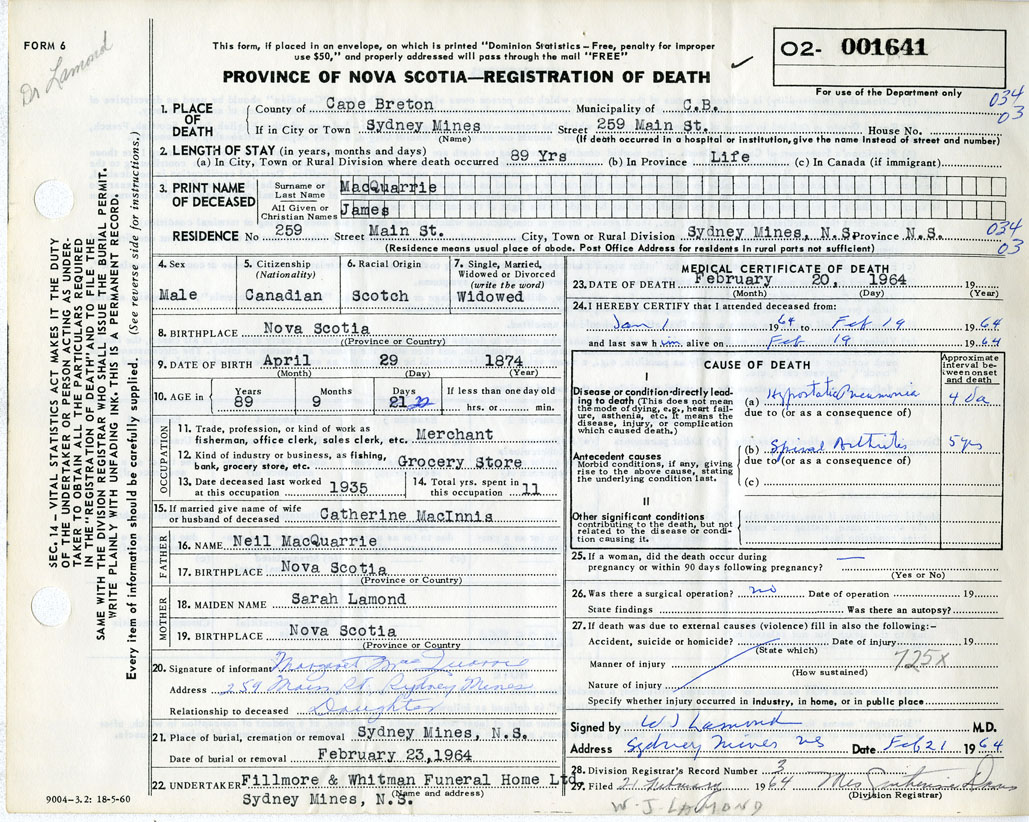 FORM 6
Dr Lamond
This form, if placed in an envelope, on which is printed "Dominion Statistics – Free, penalty for improper
use $50," and properly addressed will pass through the mail "FREE"
PROVINCE OF NOVA SCOTIA—REGISTRATION OF DEATH
O2- 001641
For use of the Department only
034
03
1. PLACE OF DEATH
County of Cape Breton Municipality of C.B.
If in City or Town Sydney Mines Street 259 Main St. House No.
(Name) (If death occurred in a hospital or institution, give the name instead of street and number)
2. LENGTH OF STAY (in years, months and days)
(a) In City, Town or Rural Division where death occurred 89 Yrs (b) In Province Life (c) In Canada (if immigrant)
3. PRINT NAME OF DECEASED
Surname or Last Name MacQuarrie
All Given or Christian Names James
RESIDENCE No 259 Street Main St. City, Town or Rural Division Sydney Mines, N.S. Province N.S.
(Residence means usual place of abode. Post Office Address for residents in rural parts not sufficient)
034
03
SEC. 14 – VITAL STATISTICS ACT MAKES IT THE DUTY
OF THE UNDERTAKER OR PERSON ACTING AS UNDER-
TAKER TO OBTAIN ALL THE PARTICULARS REQUIRED
IN THE "REGISTRATION OF DEATH" AND TO FILE THE
SAME WITH THE DIVISION REGISTRAR WHO SHALL ISSUE THE BURIAL PERMIT.
WRITE PLAINLY WITH UNFADING INK. THIS IS A PERMANENT RECORD.
Every item of information should be carefully supplied. (See reverse side for instructions.)
4. Sex
Male
5. Citizenship
(Nationality)
Canadian
6. Racial Origin
Scotch
7. Single, Married,
Widowed or Divorced
(write the word)
Widowed
8. BIRTHPLACE Nova Scotia
(Province or Country)
9. DATE OF BIRTH April 29 1874
(Month) (Day) (Year)
10. AGE in
Years Months Days If less than one day old
89 9 21 22 hrs. or min.
OCCUPATION
11. Trade, profession, or kind of work as
fisherman, office clerk, sales clerk, etc. Merchant
12. Kind of industry or business, as fishing,
bank, grocery store, etc. Grocery Store
13. Date deceased last worked
at this occupation 1935
14. Total yrs. spent in
this occupation 11
15. If married give name of wife
or husband of deceased Catherine MacInnis
FATHER
16. NAME Neil MacQuarrie
17. BIRTHPLACE Nova Scotia
(Province or Country)
MOTHER
18. MAIDEN NAME Sarah Lamond
19. BIRTHPLACE Nova Scotia
(Province or Country
20. Signature of informant Margaret MacQuarrie
Address 259 Main St. Sydney Mines
Relationship to deceased Daughter
21. Place of burial, cremation or removal Sydney Mines, N.S.
Date of burial or removal February 23,1964
22. UNDERTAKER Fillmore & Whitman Funeral Home Ltd.
(Name and address)
Sydney Mines, N.S.
9004–3.2: 18-5-60
MEDICAL CERTIFICATE OF DEATH
23. DATE OF DEATH February 20, 1964 19
(Month) (Day) (Year)
24. I HEREBY CERTIFY that I attended deceased from:
Jan 1 1964 to Feb 19 1964
and last saw him alive on Feb 19 1964
CAUSE OF DEATH
Approximate
interval be-
tween onset
and death
I
Disease or condition directly lead-
ing to death (This does not mean
the mode of dying, e.g., heart fail-
ure, asthenia, etc. It means the
disease, injury, or complication
which caused death.)
(a) Hypostatic Pneumonia 4 da
due to (or as a consequence of)
(b) Spinal Arthritis 5 yrs
due to (or as a consequence of)
Antecedent causes
Morbid conditions, if any, giving
rise to the above cause, stating
the underlying condition last.
(c)
II
Other significant conditions
contributing to the death, but not
related to the disease or condi-
tion causing it.
25. If a woman, did the death occur during
pregnancy or within 90 days following pregnancy? —
(Yes or No)
26. Was there a surgical operation? no Date of operation 19
State findings Was there an autopsy?
27. If death was due to external causes (violence) fill in also the following:–
Accident, suicide or homicide? Date of injury 19
(State which)
Manner of injury 725X
(How sustained)
Nature of injury
Specify whether injury occurred in industry, in home, or in public place
Signed by W J Lamond M.D.
Address Sydney Mines NS Date Feb 21 1964
28. Division Registrar's Record Number 3
29. Filed 21 February 1964 Mrs
(Division Registrar)
W. J. LAMOND